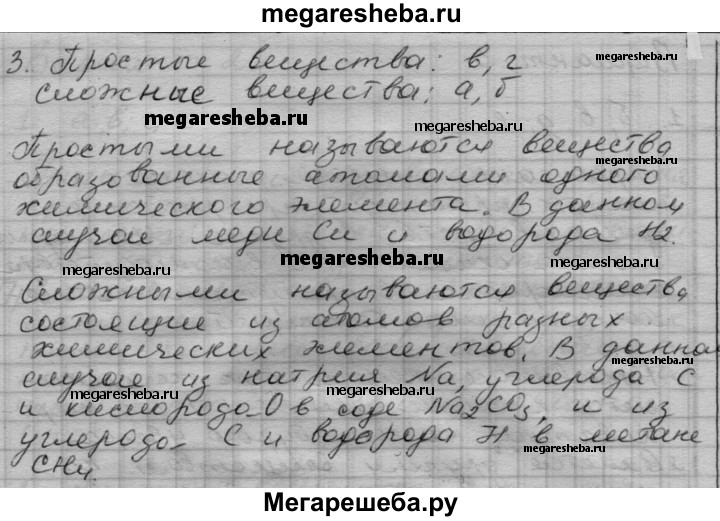 megaresheba.ru
3. Простые вещества: в, г
megaresheba.ru
сложные вещества: а, б
megaresheba.ru
megaresheba.ru
Простыми называются вещества,
megaresheba.ru
образованные атомами одного
химического элемента. В данном
megaresheba.ru
случае меди Cu и водорода H2.
megaresheba.ru
megaresheba.ru
Сложными называются вещества,
megaresheba.ru
состоящие из атомов разных
химических элементов. В данном
megaresheba.ru
случае из натрия Na, углерода C
megaresheba.ru
и кислорода O в соде Na2CO3, и из
megaresheba.ru
углерода C и водорода H в метане
megaresheba.ru
CH4.
megaresheba.ru
Мегарешеба.ру